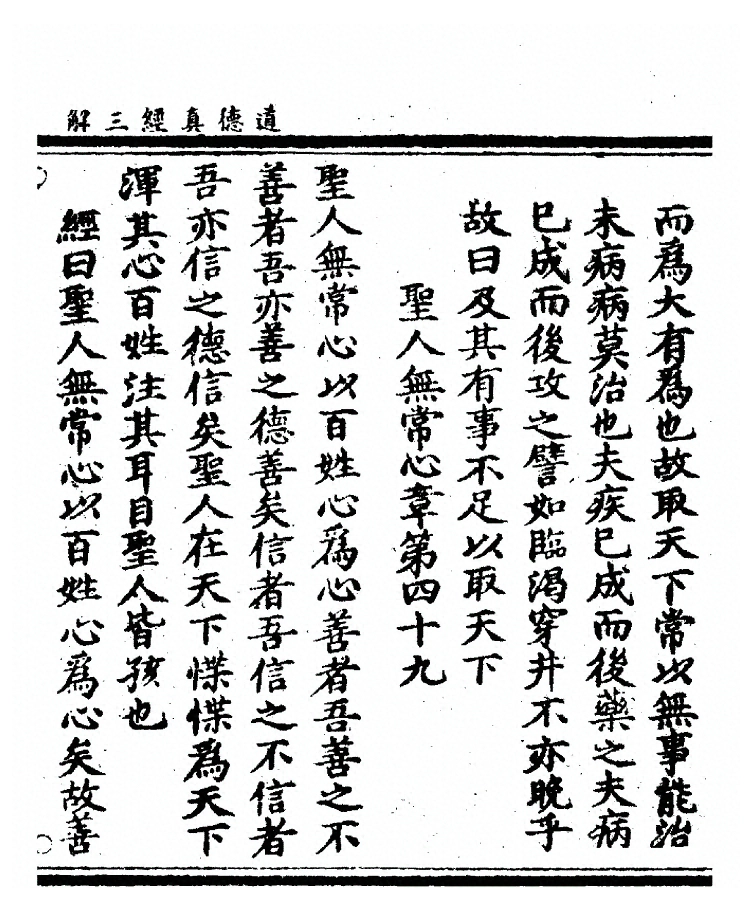 道德真經三解
而為大有為也故取天下常以無事能治
未病病莫治也夫疾已成而後藥之夫病
已成而後攻之譬如臨渴穿井不亦晚乎
故曰及其有事不足以取天下
聖人無常心章第四十九
聖人無常心以百姓心為心善者吾善之不
善者吾亦善之德善矣信者吾信之不信者
吾亦信之德信矣聖人在天下惵惵為天下
渾其心百姓注其耳目聖人皆孩也
經曰聖人無常心以百姓心為心矣故善